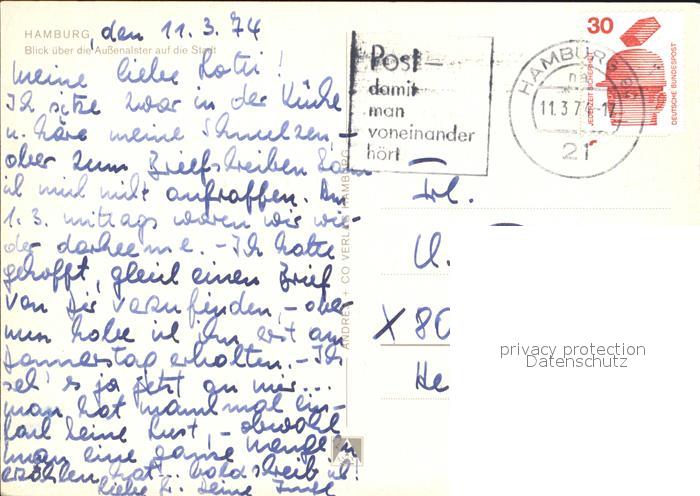 HAMBURG, den 11.3.74
Blick über die Außenalster auf die Stadt
meine liebe !
Ich sitze zwar in der Küche
u. höre meine Schnulzen, –
aber zum Briefschreiben kann
ich mich nicht aufraffen. Am
1.3. mittags waren wir wie-
der daheeme. – Ich hatte
gehofft, gleich einen Brief
von Dir vorzufinden, – aber
nun habe ich ihn erst am
Donnerstag erhalten. – Ich
seh's ja jetzt an mir...
man hat manchmal ein-
fach keine Lust, – obwohl
man eine ganze Menge zu
erzählen hat... bald schreib ich!
Liebe Gr. Deine
ANDRES + CO VERLAG HAMBURG
Post –
damit
man
voneinander
hört
HAMBURG
11.3.74-17
21
30
JEDERZEIT SICHERHEIT
DEUTSCHE BUNDESPOST
Frl.
U.
X 80
He
privacy protection
Datenschutz